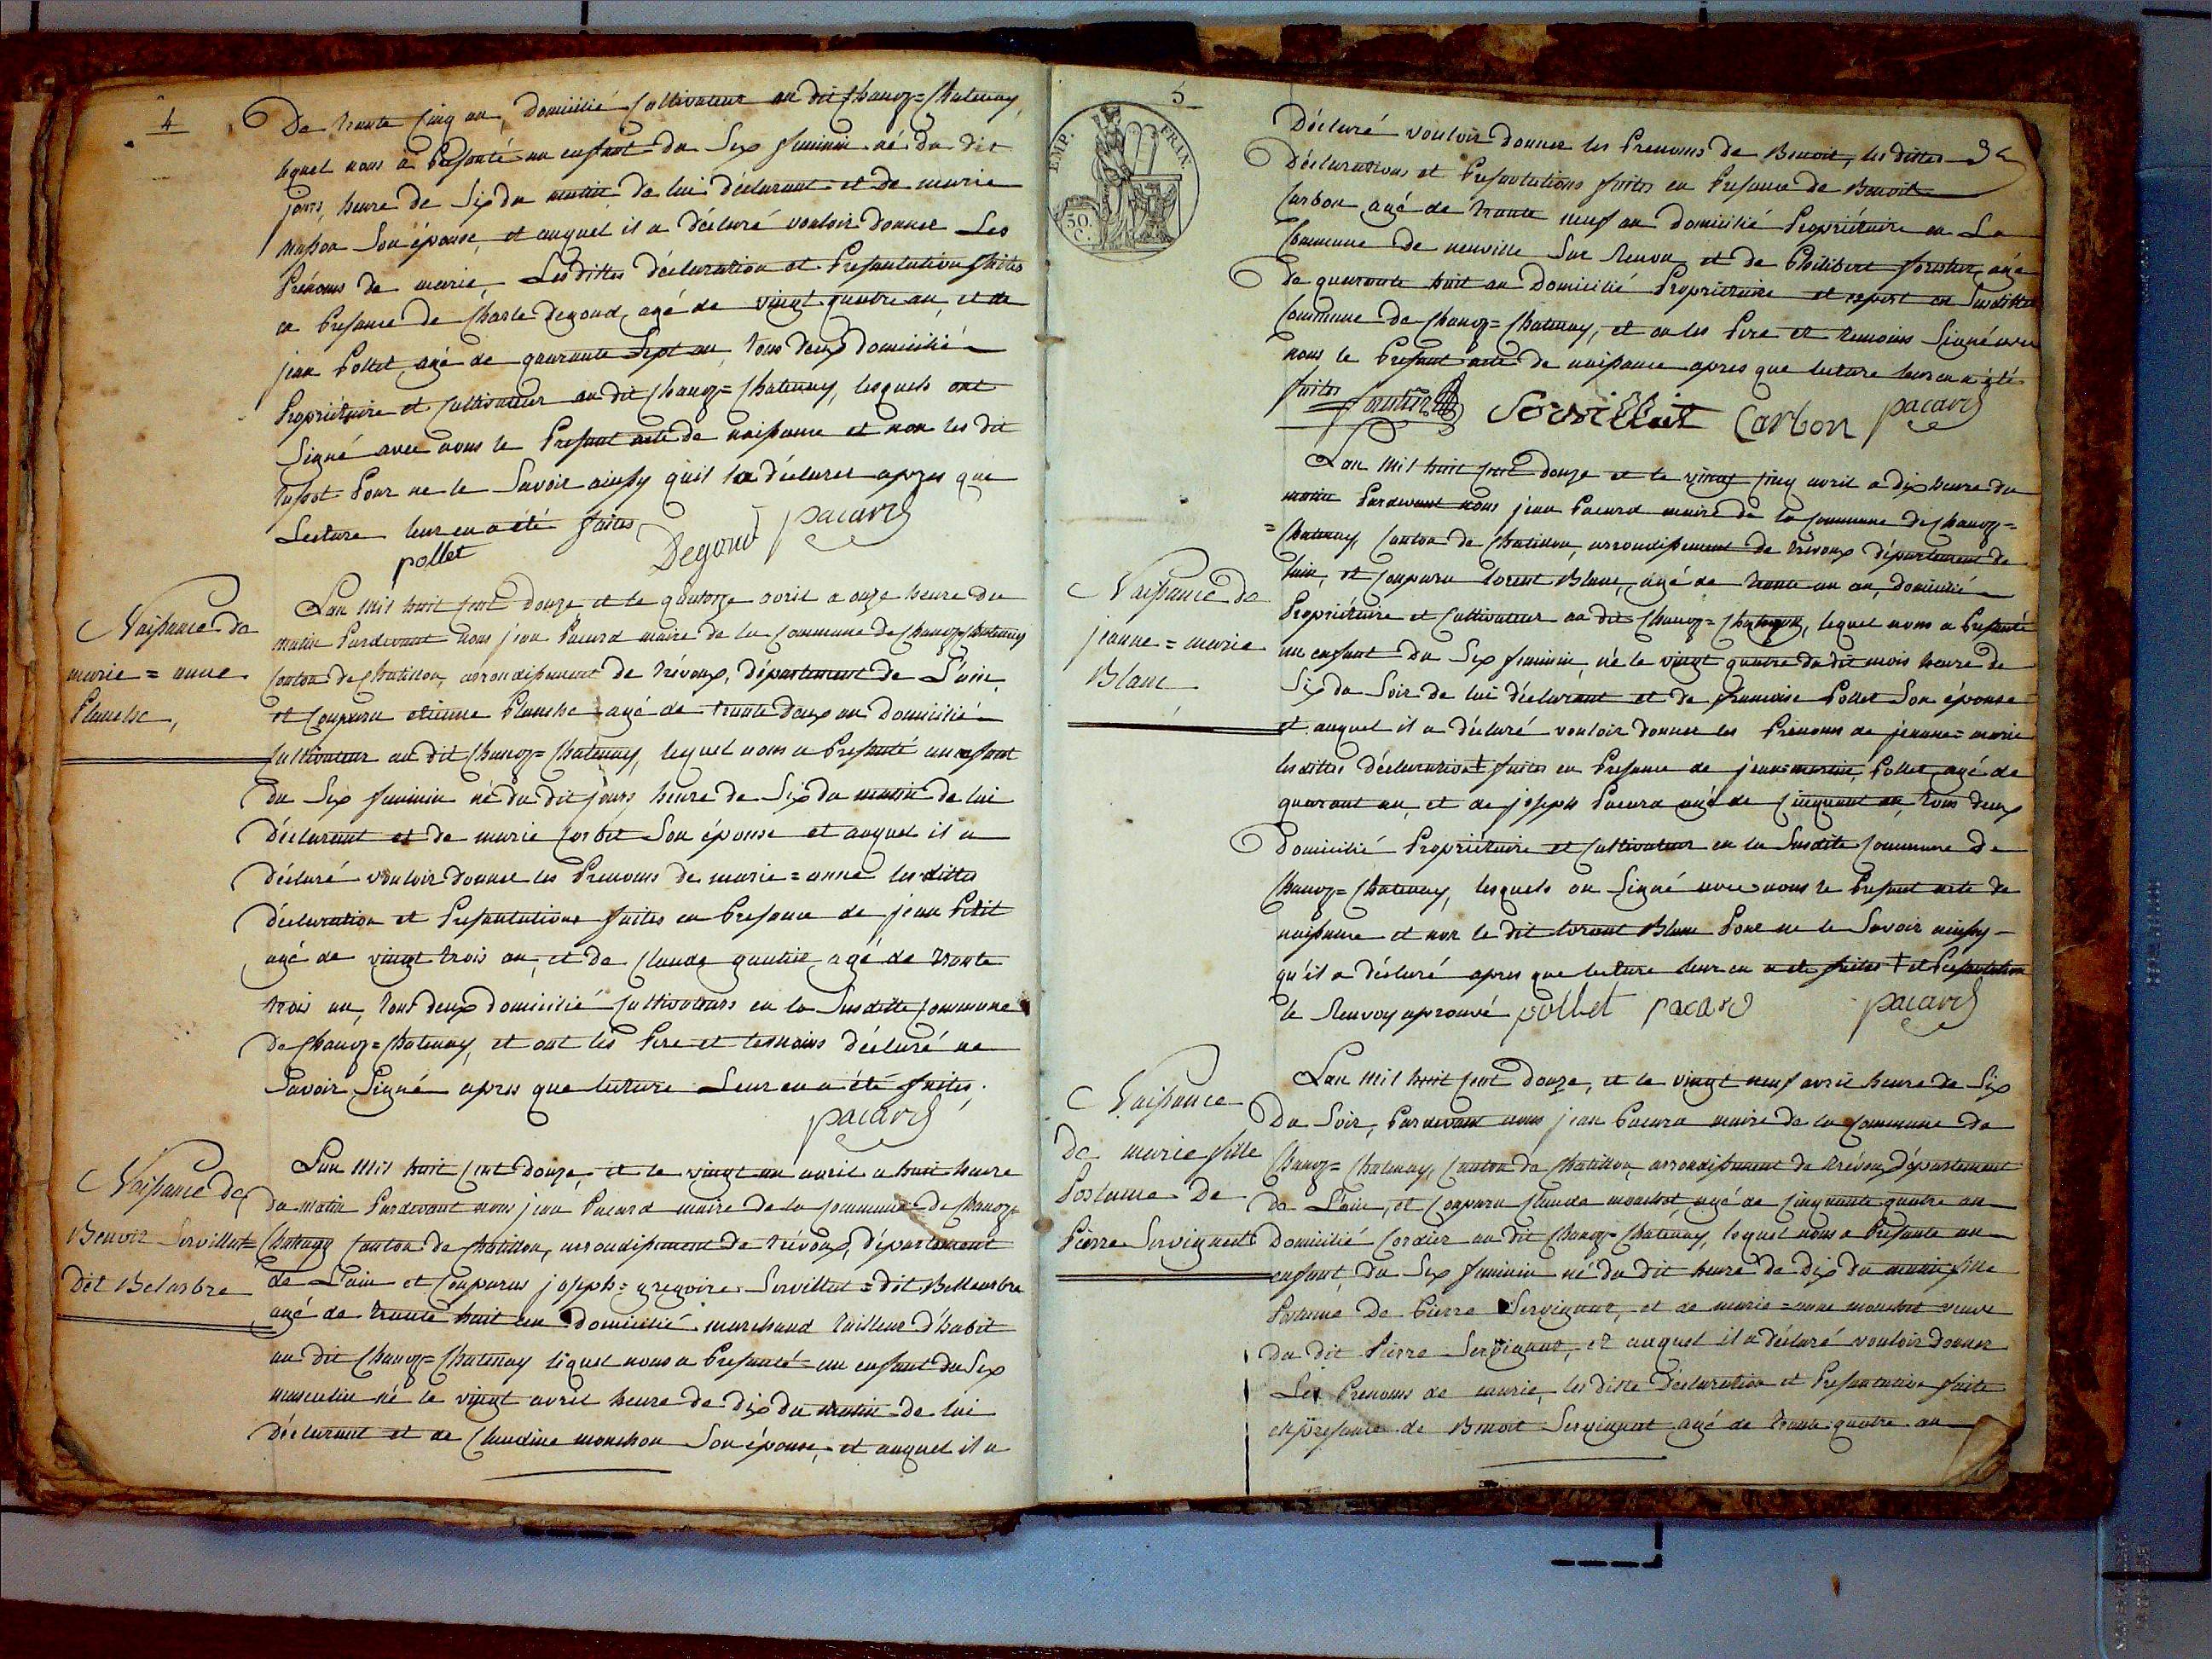 4
De trante Cinq an, domicilié Cultivateur au dit Chanoz=Chatenay,
lequel nous a Presanté un enfant du Sex feminin né du dit
jours, heure de Six du matin de lui déclarant et de marie
son épouse, et auquel il a déclaré vouloir donner Les
Prénoms de marie, Les dittes déclaration et Presantation faites
en Presance de Charle Degoud, agé de vingt quatre an, et de
jean Pollet, agé de quarante Sept an, tous deux domicilié
Propriétaire et Cultivateur au dit Chanoz=Chatenay, lesquels ont
Signé avec nous le Presant acte de naissance et non les dit
Pour ne le Savoir ainssy quil la déclarer apres que
Lecture leur en a été faites
pollet Degoud pacard
Naissance de
marie=anne
Planche,
Lan Mil huit Cent Douze et le quatorze avril a onze heure du
matin Pardevant nous jean Pacard maire de la Commune de Chanoz=Chatenay
Canton de Chatillon, arrondissement de trévoux, département de L'ain,
et Comparu etienne Planche agé de trante deux an Domicilié
Cultivateur au dit Chanoz=Chatenay, lequel nous a Presanté un enfant
du Sex feminin né du dit jours heure de Six du matin de lui
déclarant et de marie Corbet Son épouse et auquel il a
déclaré vouloir donner les Prenoms de marie=anne les dittes
déclaration et Presantations faites en Presance de jean Petit
agé de vingt trois an, et de Claude gautier agé de trante
trois an, tous deux domicilié Cultivateurs en la Susditte Commune
de Chanoz=Chatenay, et ont les Pere et temoins déclaré ne
Savoir Signé apres que lecture Leur en a été faites.
pacard
Naissance de
Benoit Servillat=
dit Belarbre
Lan Mil huit Cent Douze, et le vingt un avril a huit heure
du matin Pardevant nous jean Pacard maire de la Commune de Chanoz=
Chatenay Canton de Chatillon, arrondissement de trévoux, département
de L'ain et Comparus joseph=gregoire Servillat=dit Bellearbre
agé de trante huit an domicilié marchand tailleur d'habit
au dit Chanoz=Chatenay lequel nous a Presanté un enfant du Sex
masculin né le vingt avril heure de dix du matin de lui
déclarant et de Claudine monchon Son épouse, et auquel il a
5
EMP. FRAN.
50 C.
Déclaré vouloir donner les Prenoms de Benoit, les dittes
déclarations et Presantations faites en Presance de Benoit
Carbon agé de trante neuf an domicilié Propriétaire en La
Commune de neuville Sur Renon et de Philibert agé
de quarante huit an Domicilié Propriétaire et expert en Susditte
Commune de Chanoz=Chatenay, et on les Pere et temoins Signé avec
nous le Presant acte de naissance apres que lecture leur en a été
faites
Servillat Carbon pacard
Lan Mil huit Cent douze et le vingt Cinq avril a dix heure du
matin Pardevant nous jean Pacard maire de la Commune de Chanoz=
=Chatenay, Canton de Chatillon, arrondissement de trevoux département de
lain, et Comparu lorent Blanc, agé de trante un an, domicilié
Propriétaire et Cultivateur au dit Chanoz=Chatenay, lequel nous a Presanté
un enfant du Sex feminin, né le vingt quatre du dit mois heure de
Six du Soir de lui déclarant et de francoise Pollet Son épouse
et auquel il a déclaré vouloir donner les Prenoms de jeanne=marie
les dittes déclaration † faites en Presance de jean=marie Pollet, agé de
quarant an, et de joseph Pacard agé de Cinquant an, tous deux
Domicilié Propriétaire et Cultivateur en la Susdite Commune de
Chanoz=Chatenay, lesquels on Signé avec nous le Presant acte de
naissance et non le dit lorant Blanc Pour ne le Savoir ainssy
qu'il a déclaré apres que lecture leur en a ete faites † et Presantation
le Renvoy aprouvé pollet pacard pacard
Naissance de
jeanne=marie
Blanc
Naissance
de marie fille
Postume De
Pierre Servignat
Lan Mil huit Cent douze, et le vingt neuf avril heure de Six
Du Soir, Pardevant nous jean Pacard maire de la Commune de
Chanoz=Chatenay, Canton de Chatillon, arrondissement de trévoux, département
de L'ain, et Comparu Claude monchot, agé de Cinquante quatre an
Domicilié Cordier au dit Chanoz=Chatenay, lequel nous a Presante un
enfant, du Sex feminin né du dit heure de Dix du matin fille
Postume De Pierre Servignat, et de marie=anne monchot veuve
du dit Pierre Servignat, et auquel il a déclaré vouloir donner
Les Prenoms de marie, les diste déclaration et Presantation faite
en presance de Benoit Servignat agé de trante quatre an